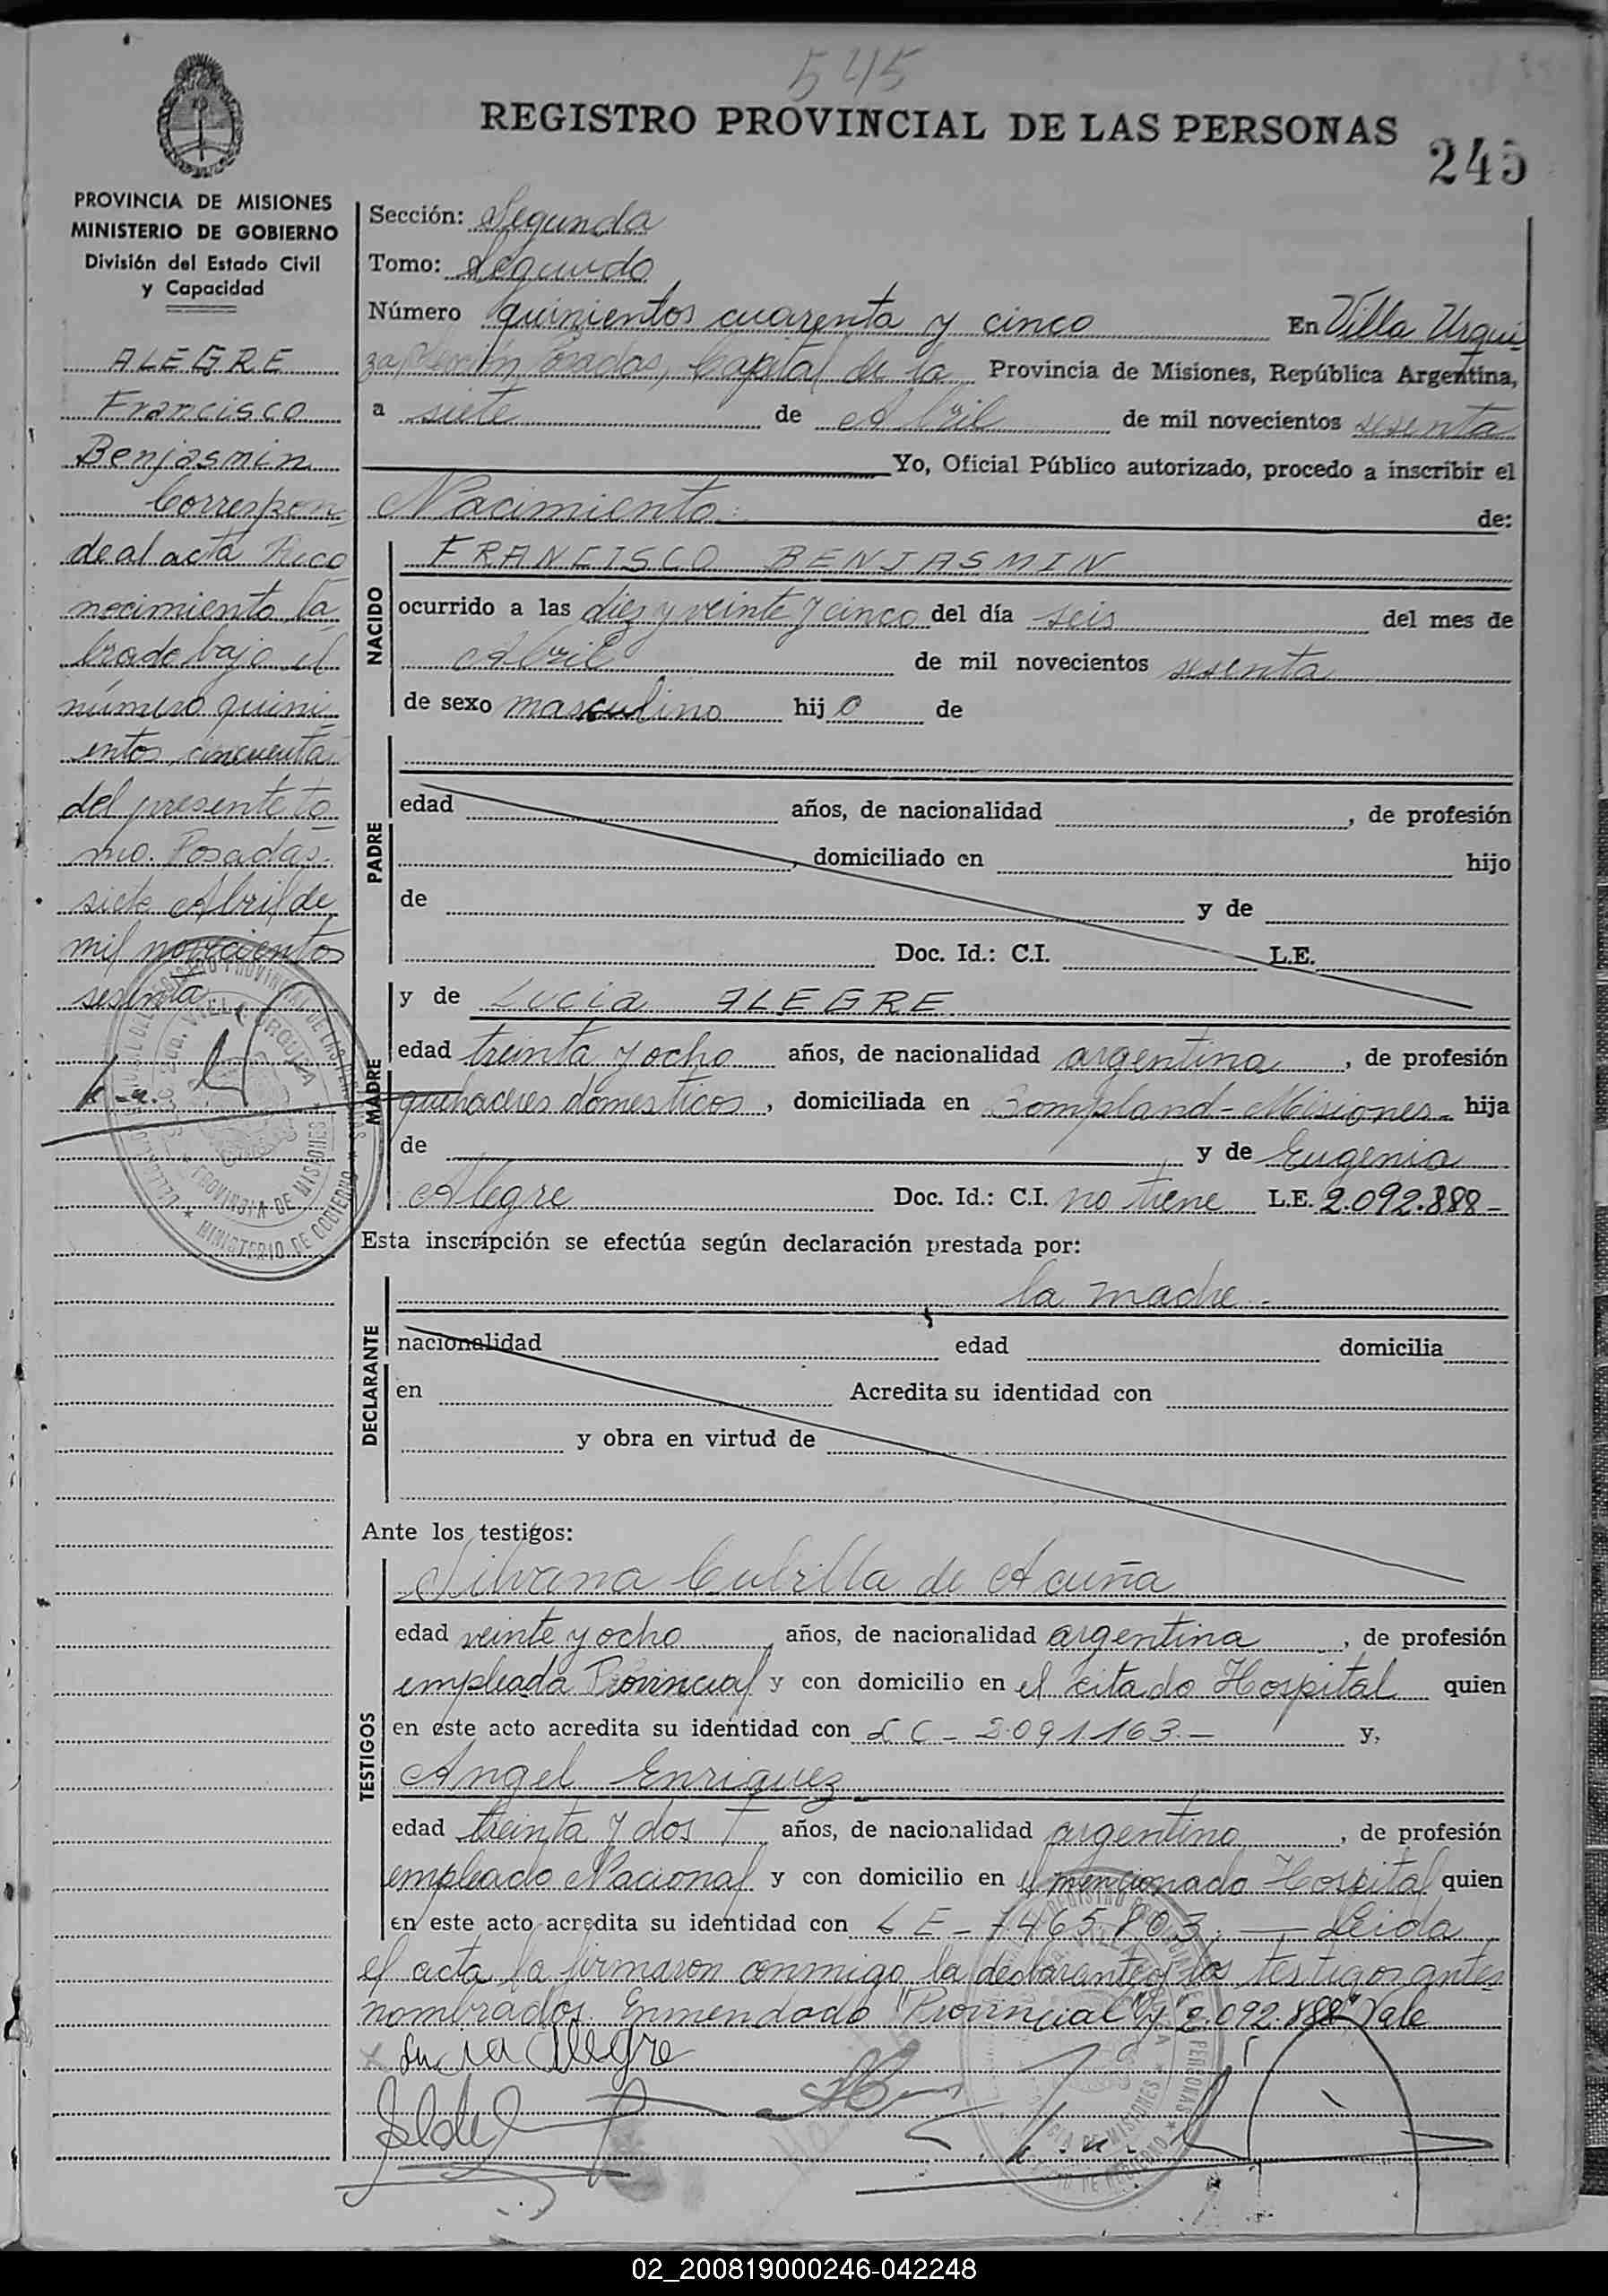 545
REGISTRO PROVINCIAL DE LAS PERSONAS
245
PROVINCIA DE MISIONES
MINISTERIO DE GOBIERNO
División del Estado Civil
y Capacidad
ALEGRE
Francisco
Benjasmin
Correspon
de al acta Reco
nocimiento la
brado bajo el
número quini
entos cincuenta
del presente to
mo. Posadas.
siete Abril de
mil novecientos
sesenta
Sección: Segunda
Tomo: Segundo
Número quinientos cuarenta y cinco En Villa Urqui
za Posadas, Capital de la Provincia de Misiones, República Argentina,
a siete de Abril de mil novecientos sesenta
Yo, Oficial Público autorizado, procedo a inscribir el
Nacimiento de:
NACIDO
FRANCISCO BENJASMIN
ocurrido a las diez y veinte y cinco del día seis del mes de
Abril de mil novecientos sesenta
de sexo masculino hijo de
PADRE
edad años, de nacionalidad , de profesión
, domiciliado en hijo
de y de
Doc. Id.: C.I. L.E.
MADRE
y de Lucia ALEGRE
edad treinta y ocho años, de nacionalidad argentina , de profesión
quehaceres domesticos , domiciliada en Bompland - Misiones - hija
de y de Eugenia
Alegre Doc. Id.: C.I. no tiene L.E. 2.092.888 -
Esta inscripción se efectúa según declaración prestada por:
DECLARANTE
la madre -
nacionalidad edad domicilia
en Acredita su identidad con
y obra en virtud de
Ante los testigos:
TESTIGOS
Silvana Cubilla de Acuña
edad veinte y ocho años, de nacionalidad argentina , de profesión
empleada Provincial y con domicilio en el citado Hospital quien
en este acto acredita su identidad con L C - 2.091.163. - y,
Angel Enriquez
edad treinta y dos años, de nacionalidad argentino , de profesión
empleado Nacional y con domicilio en el mencionado Hospital quien
en este acto acredita su identidad con L E - 7465803. — Leida
el acta la firmaron conmigo la declarante y los testigos antes
nombrados. Enmendado "Provincial" y "2.092.888" Vale
Lucia Alegre
02_200819000246-042248